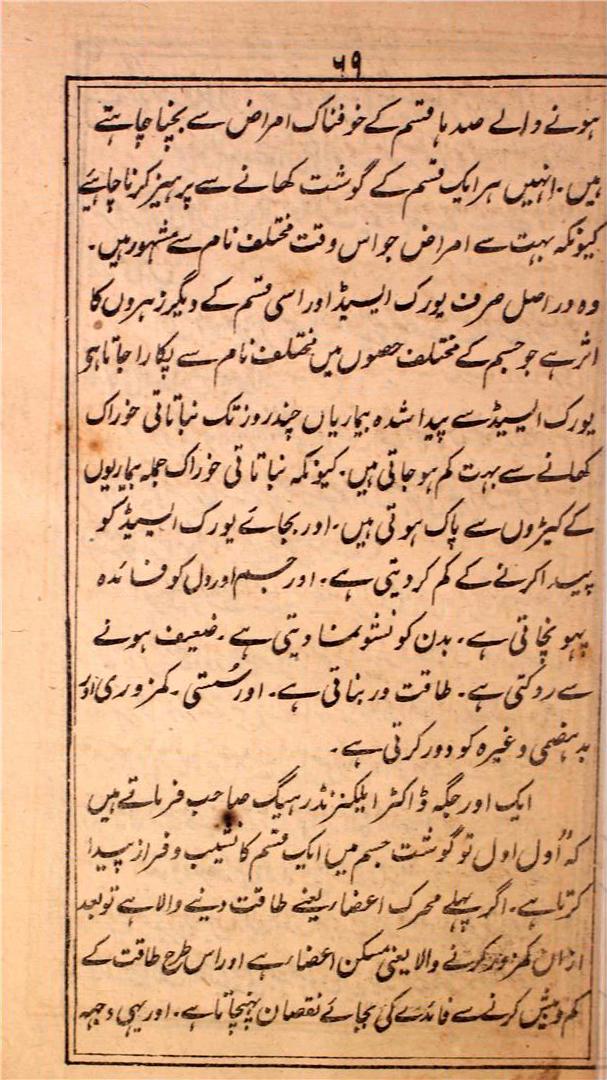 ۶۹
ہونے والے صدہا قسم کے خوفناک امراض سے بچنا چاہتے
ہیں۔ انہیں ہر ایک قسم کے گوشت کھانے سے پرہیز کرنا چاہئے
کیونکہ بہت سے امراض جو اس وقت مختلف نام سے مشہور ہیں۔
وہ دراصل صرف یورک ایسیڈ اور اسی قسم کے دیگر زہروں کا
اثر ہے جو جسم کے مختلف حصوں میں مختلف نام سے پکارا جاتا ہو
یورک ایسیڈ سے پیدا شدہ بیماریاں چند روز تک نباتاتی خوراک
کھانے سے بہت کم ہو جاتی ہیں۔ کیونکہ نباتاتی خوراک جملہ بیماریوں
کے کیڑوں سے پاک ہوتی ہیں۔ اور بجائے یورک ایسیڈ کو
پیدا کرنے کے کم کر دیتی ہے۔ اور جسم اور دل کو فائدہ
پہونچاتی ہے۔ بدن کو نشو نما دیتی ہے۔ ضعیف ہونے
سے روکتی ہے۔ طاقت ور بناتی ہے۔ اور سُستی۔ کمزوری اور
بدہضمی وغیرہ کو دور کرتی ہے۔
ایک اور جگہ ڈاکٹر ایلکزنڈر ہیگ صاحب فرماتے ہیں
کہ "اول اول تو گوشت جسم میں ایک قسم کا نشیب و فراز پیدا
کرتا ہے۔ اگر پہلے محرک اعضا یعنے طاقت دینے والا ہے تو بعد
ازاں کمزور کرنے والا یعنی مسکن اعضا ہے اور اس طرح طاقت کے
کم و بیش کرنے سے فائدے کی بجائے نقصان پہنچاتا ہے۔ اور یہی وجہ